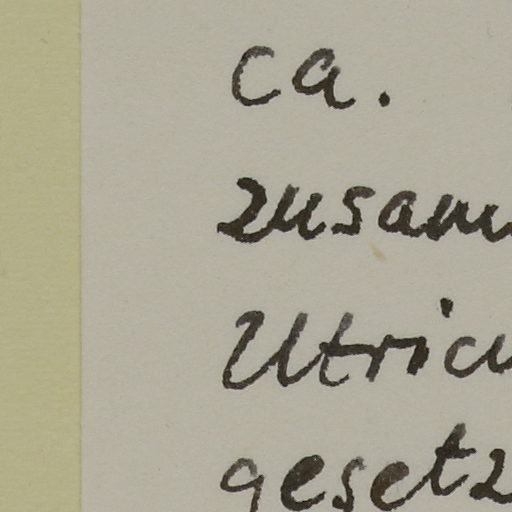 ca.
zusam
Utricu
gesetz